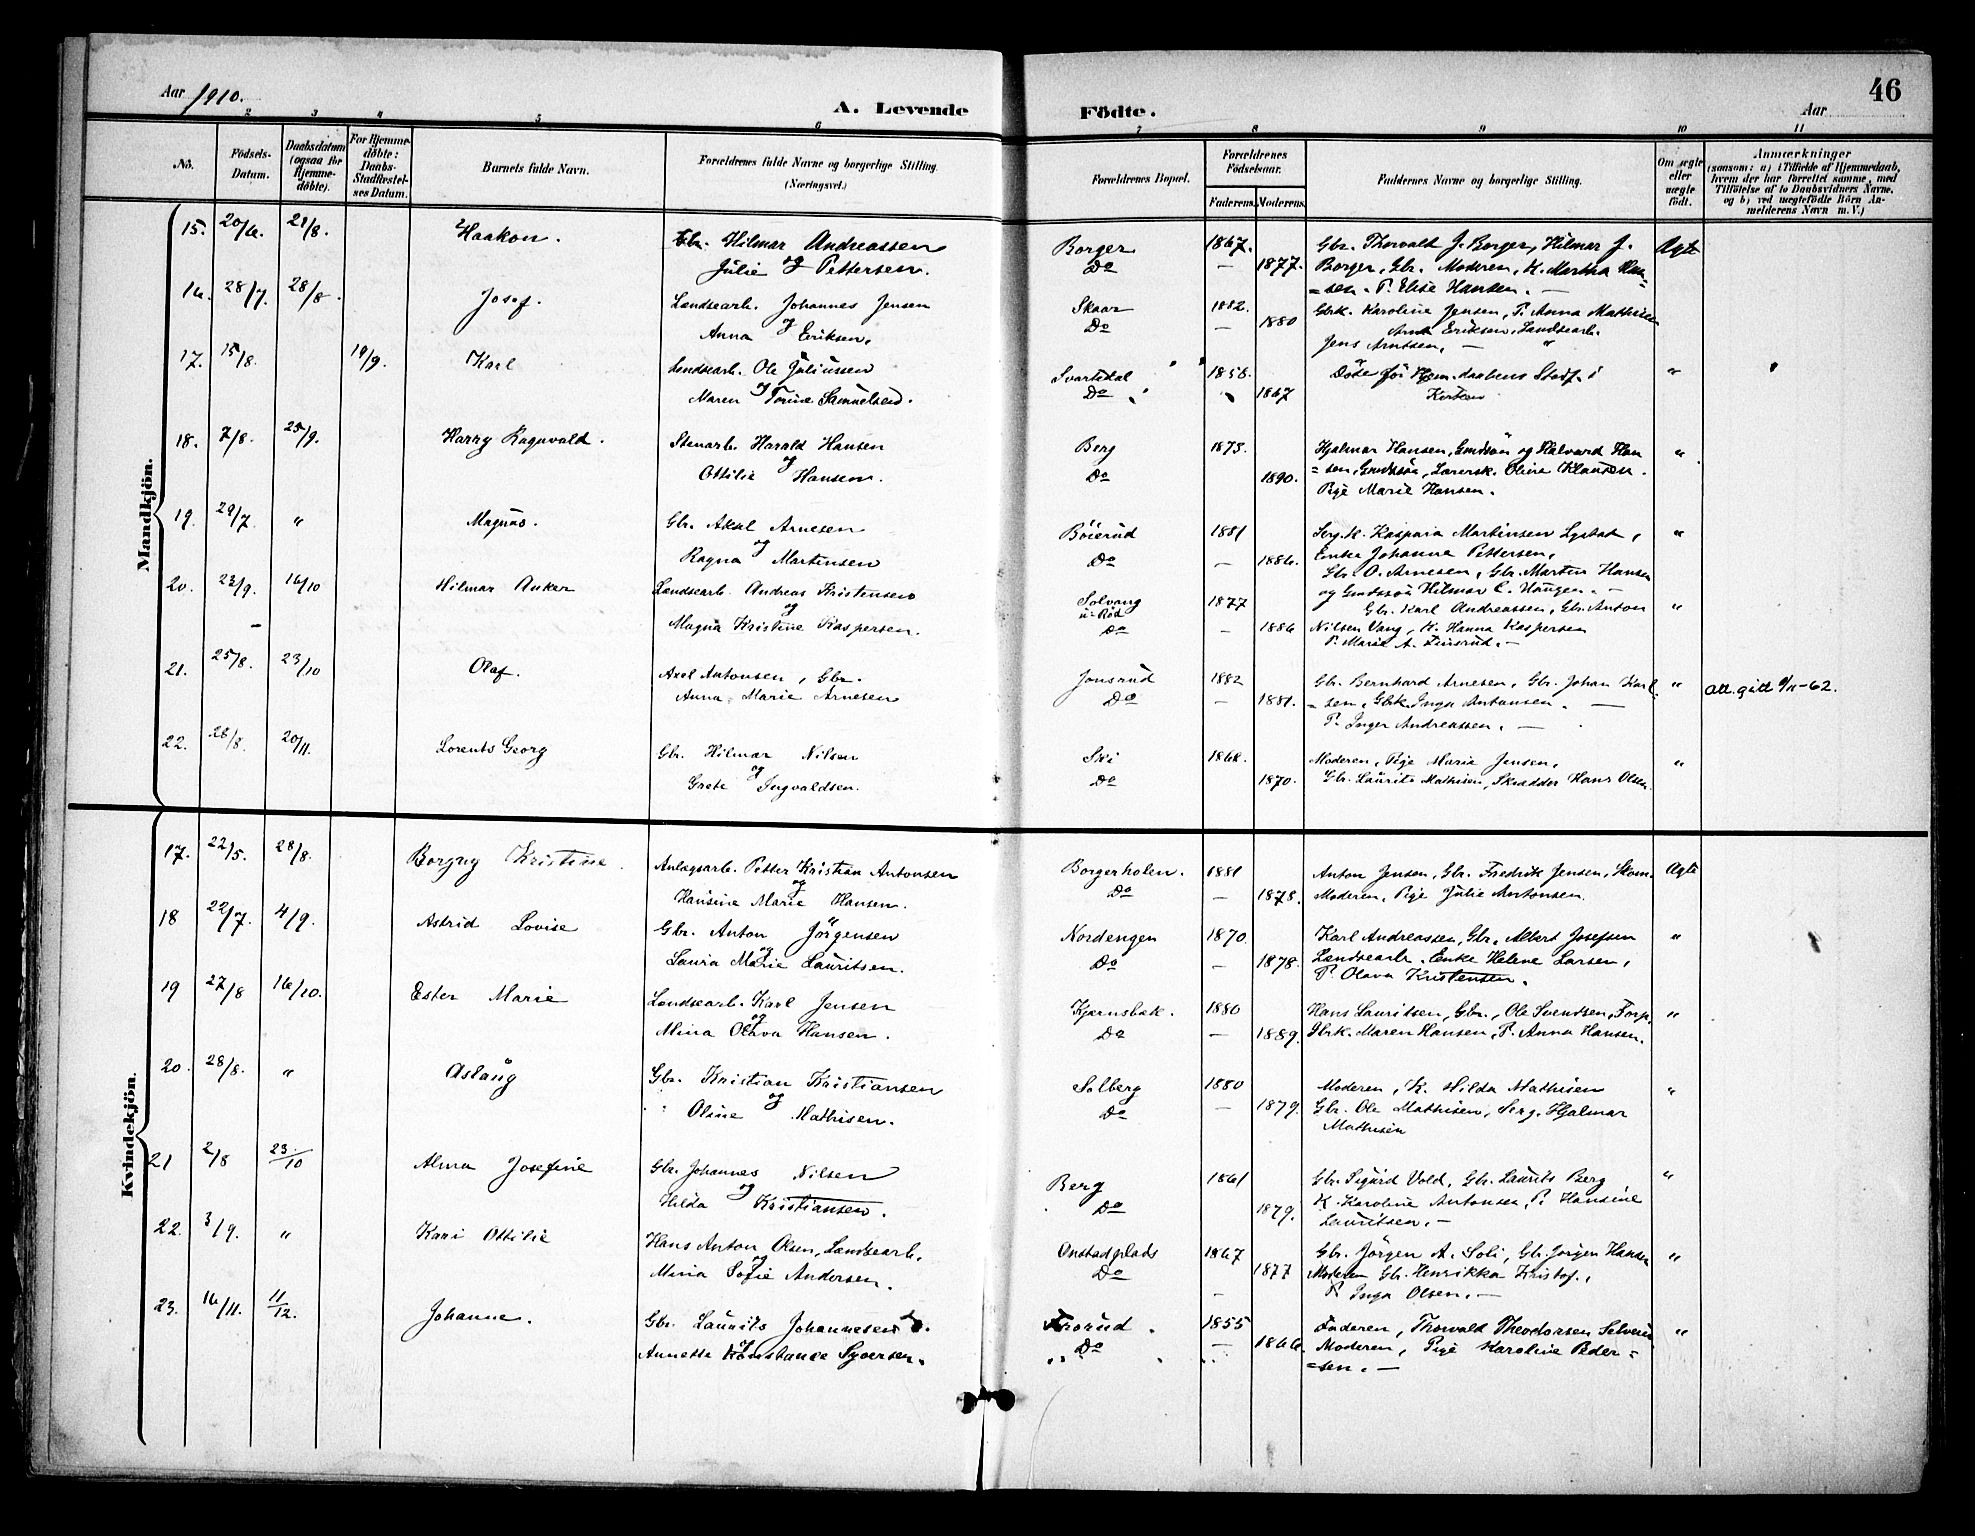 46
Aar 1910.
A. Levende Födte.
Aar
2 3 4 5 6 7 8 9 10 11
No.
Födsels-Datum.
Daabsdatum (ogsaa for Hjemmedøbte).
For Hjemmedøbte: Daabs-Stadfæstelses Datum.
Barnets fulde Navn.
Forældrenes fulde Navne og borgerlige Stilling. (Næringsvei.)
Forældrenes Bopæl.
Forældrenes Födselsaar.
Faderens. Moderens.
Faddernes Navne og borgerlige Stilling.
Om ægte eller uægte födt.
Anmærkninger
(saasom: a) i Tilfælde af Hjemmedaab, hvem der har forrettet samme, med Tilföielse af to Daabsvidners Navne, og b) ved uægtefødte Börn Anmelderens Navn m. V.)
Mandkjön.
15. 20/6. 21/8. Haakon. Gbr. Hilmar Andreassen Borger 1867. Gbr. Thorvald J. Borger, Hilmar J. Ægte
og Julie Pettersen. Do — 1877. Borger, Gbr. Moderen, K. Martha Han=
=sen. P. Elise Hansen. —
16. 28/7. 28/8. Josef. Landsearb. Johannes Jensen Skaar 1882. Gbrk. Karoline Jensen, P. Anna Mathisen
og Anna Eriksen. Do — 1880 Eriksen, Landsearb.
Jens Arntsen, — "
17. 15/8. 19/9. Karl Landsearb. Ole Juliussen Svartedal 1858. Døde før Hjem.daabens Stadf. i "
og Maren Torine Samuelsen. Do 1867 Kirken
18. 7/8. 25/9. Harry Ragnvald. Stenarb. Harald Hansen Berg 1873. Hjalmar Hansen, Gaardsøn og Halvard Han "
og Ottilie Hansen. Do 1890. =sen, Gaardsøn, Lærersk. Olina Klausen.
Pige Marie Hansen.
19. 29/7. " Magnus. Gbr. Aksel Arnesen Böierud 1881 Serg. K. Kasparia Martinsen Lystad, "
og Ragna Martinsen Do — 1886. Enke Johanna Pettersen,
Gbr. O. Arnesen, Gbr. Martin Hansen
og Gaardsøn Hilmar C. Haugen. —
20. 23/9. 16/10 Hilmar Anker Landsearb. Andreas Kristensen Solvang u. Rød 1877 Gbr. Karl Andreassen, Gbr. Anton "
og Magna Kristine Kaspersen. Do — 1886 Nilsen Vang, K. Hanna Kaspersen
P. Maria A. Finsrud. —
21. 25/8. 23/10 Olaf. Axel Antonsen, Gbr. Jonsrud 1882 Gbr. Bernhard Arnesen, Gbr. Johan Karl " att. gitt 9/11-62.
Anna Marie Arnesen Do — 1881. =sen, Gbrk. Inga Antonsen. —
P. Inger Andreassen. —
22. 26/8. 20/11. Lorents Georg Gbr. Hilmar Nilsen Ski 1868. Moderen, Pige Maria Jensen, "
og Grete Ingvaldsen. Do 1870. Gbr. Laurits Mathisen, Skrædder Hans Olsen.
Kvindekjön.
17. 22/5. 28/8. Borgny Kristine. Anlægsarb. Petter Kristian Antonsen Borgerholen. 1881 Anton Jensen, Gbr. Fredrik Jensen, Skom. Ægte
og Hansine Marie Hansen. Do — 1878. Moderen, Pige Julie Antonsen.
18 22/7. 4/9. Astrid Lovise Gbr. Anton Jörgensen Nordengen 1870. Karl Andreassen, Gbr. Albert Josefsen "
og Laura Marie Lauritsen. Do — 1878. Landsearb. Enke Helene Larsen,
P. Olava Kristensen.
19 27/8 16/10. Ester Marie Landsearb. Karl Jensen Kjærnsbæk. 1880 Hans Lauritsen, Gbr., Ole Svendsen, Forp. "
og Mina Olava Hansen. Do — 1889. Gbrk. Maren Hansen, P. Anna Hansen.
20. 28/8. " Aslaug Gbr. Kristian Kristiansen Solberg 1880 Moderen, K. Hilda Mathisen "
og Oline Mathisen. Do — 1879. Gbr. Ole Mathisen, Serg. Hjalmar
Mathisen
21 2/8 23/10 Alma Josefine Gbr. Johannes Nilsen Berg 1861 Gbr. Sigurd Vold, Gbr. Laurits Berg "
og Hilda Kristiansen. Do 1879. K. Karoline Antonsen, P. Hansine
Lauritsen. —
22. 3/9. " Kari Ottilie Hans Anton Olsen, Landsearb. Onstadplads 1867 Gbr. Jörgen A. Soli, Gbr. Jörgen Hansen "
og Mina Sofie Andersen. Do — 1877 Moderen Gbr. Henrikka Kristof.,
P. Inga Olsen. —
23. 16/11. 11/12. Johanne. Gbr. Laurits Johannesen 1855 Faderen, Thorvald Theodorsen "
og Annette Konstance Do — 1866. Moderen, Pige Karoline Peder=
=sen. —